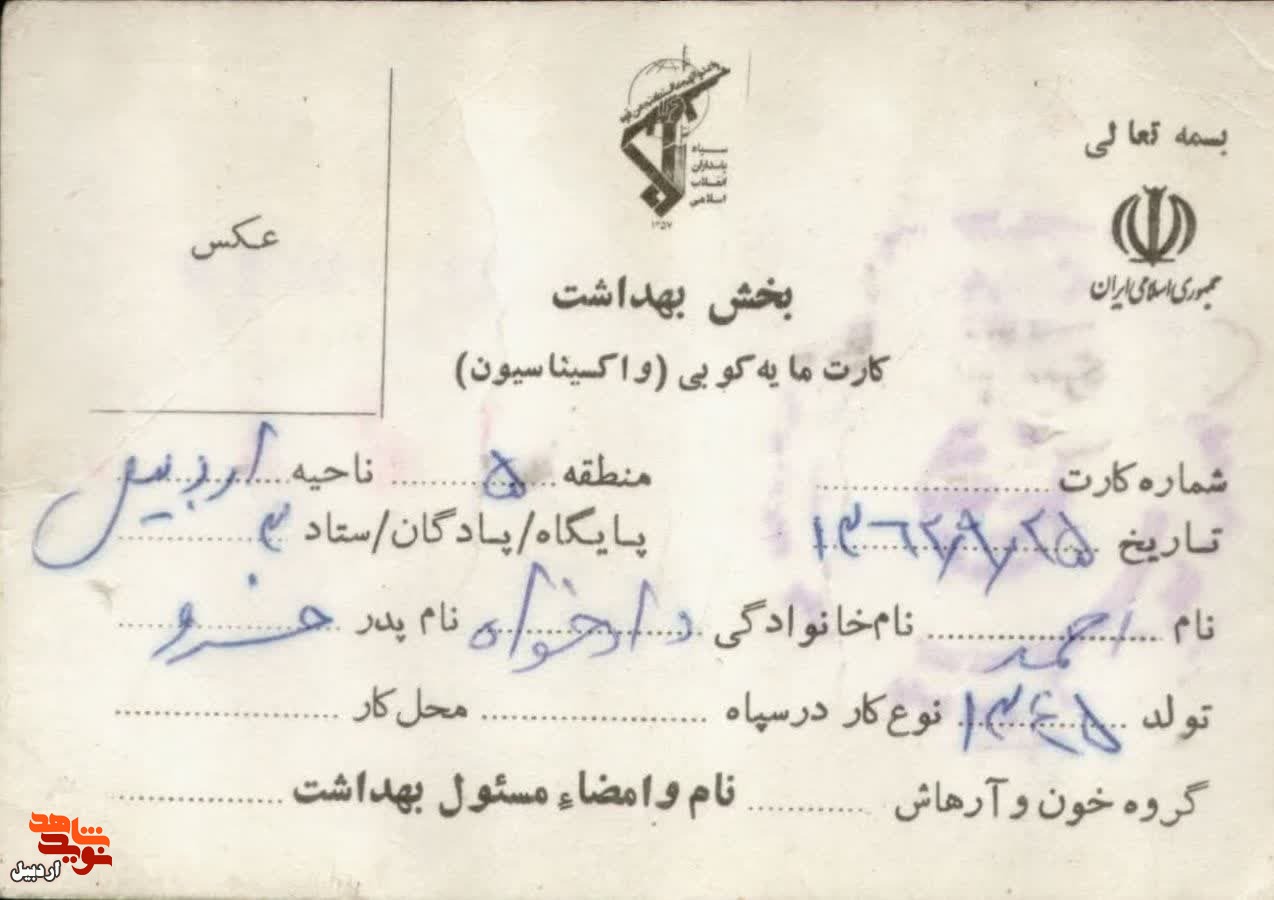 بسمه تعالی
جمهوری اسلامی ایران
سپاه
پاسداران
انقلاب
اسلامی
۱۳۵۷
عکس
بخش بهداشت
کارت مایه‌کوبی (واکسیناسیون)
شماره کارت .......... منطقه ۵ ناحیه اردبیل
تاریخ ۱۳۶۲/۹/۲۵ پایگاه/پادگان/ستاد ۳
نام احمد نام‌خانوادگی دادخواه نام پدر خسرو
تولد ۱۳۴۵ نوع کار درسپاه .......... محل کار ..........
گروه خون و آرهاش .......... نام و امضاء مسئول بهداشت ..........
نوید شاهد
اردبیل